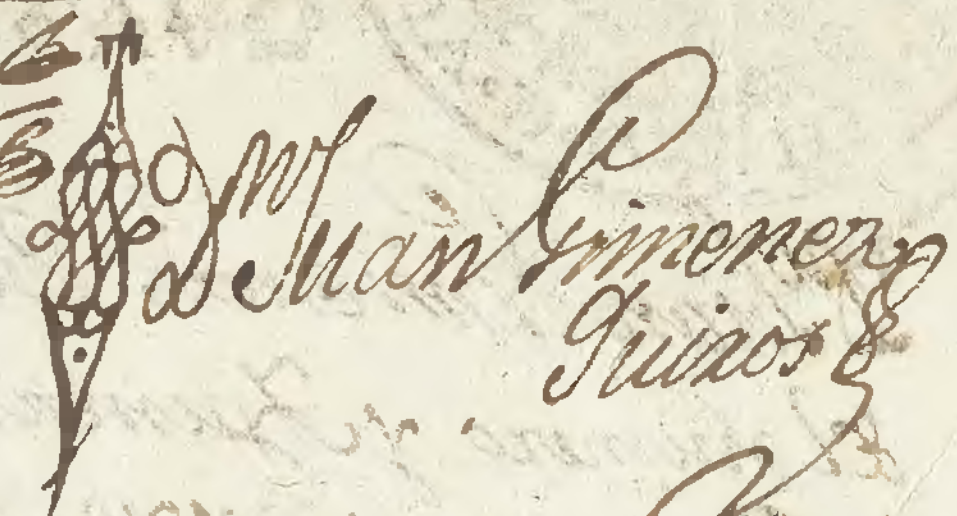 Juan Gimenez
Quiros